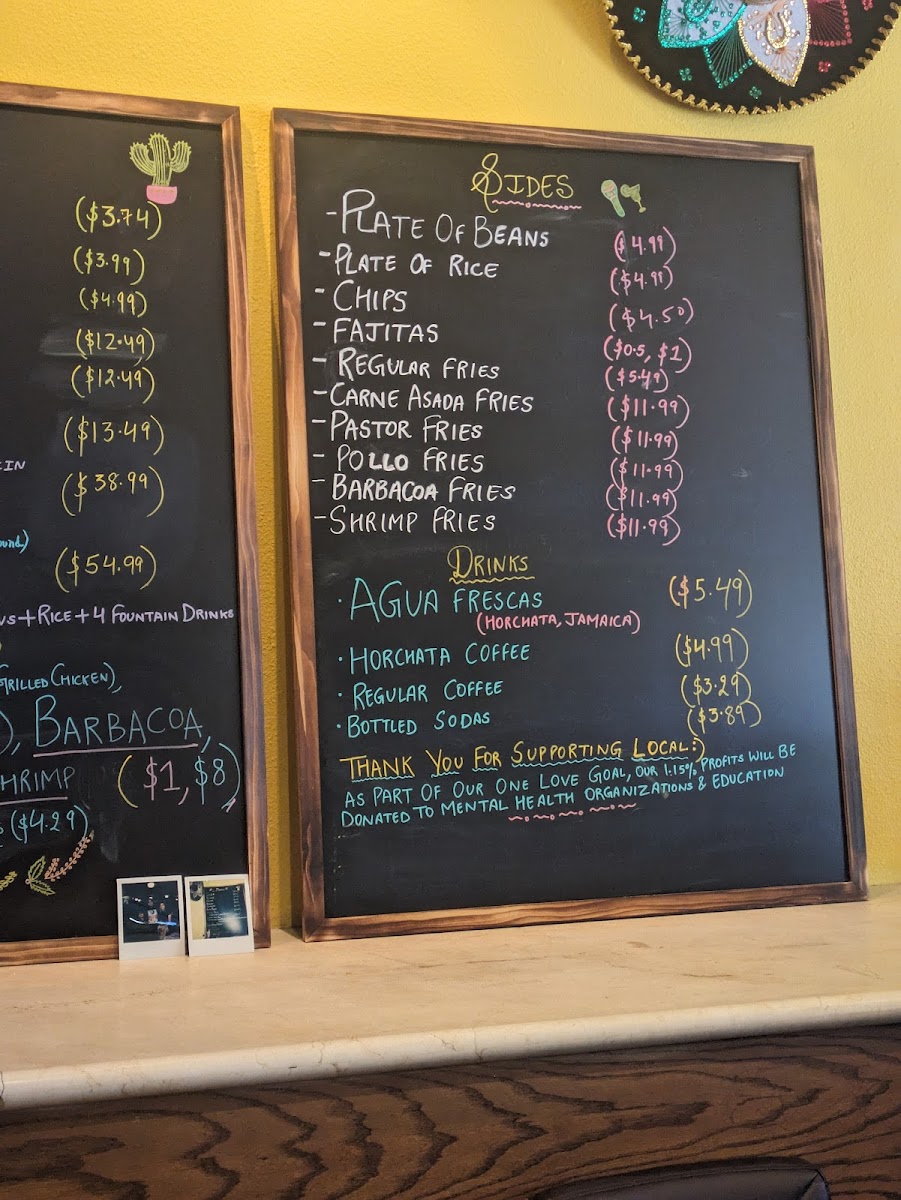 ($3.74)
($3.99)
($4.99)
($12.49)
($12.49)
($13.49)
($38.99)
($54.99)
+RICE+4 FOUNTAIN DRINKS
GRILLED CHICKEN),
), BARBACOA,
SHRIMP ($1, $8)
($4.29)
SIDES
-PLATE OF BEANS ($4.99)
-PLATE OF RICE ($4.99)
-CHIPS ($4.50)
-FAJITAS ($0.5, $1)
-REGULAR FRIES ($5.49)
-CARNE ASADA FRIES ($11.99)
-PASTOR FRIES ($11.99)
-POLLO FRIES ($11.99)
-BARBACOA FRIES ($11.99)
-SHRIMP FRIES ($11.99)
DRINKS
·AGUA FRESCAS ($5.49)
(HORCHATA, JAMAICA)
·HORCHATA COFFEE ($4.99)
·REGULAR COFFEE ($3.29)
·BOTTLED SODAS ($3.89)
THANK YOU FOR SUPPORTING LOCAL:)
AS PART OF OUR ONE LOVE GOAL, OUR 1.15% PROFITS WILL BE
DONATED TO MENTAL HEALTH ORGANIZATIONS & EDUCATION